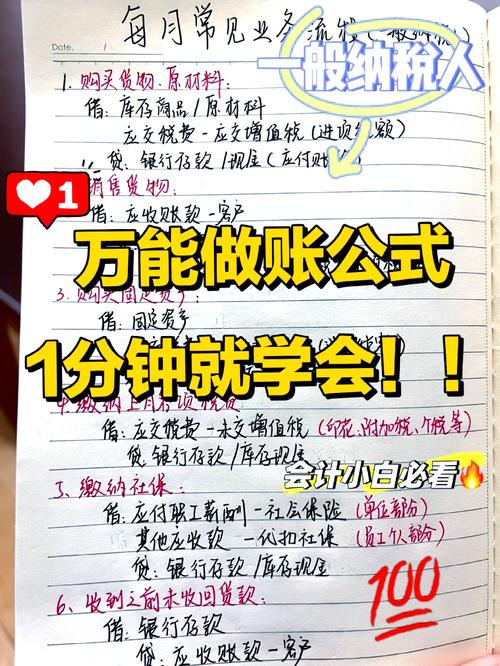 每月常见业务流程(一般纳税人)
Date. /
一般纳税人
1. 购买货物、原材料:
借: 库存商品/原材料
应交税费-应交增值税(进项税额)
贷: 银行存款/现金(应付账
销售货物:
1
借: 应收账款-客户
万能做账公式
3. 购买固定资产:
借: 固定资产
1分钟就学会!!
4. 缴纳上月各项税费
借: 应交税费-未交增值税(印花、附加税、个税等)
贷: 银行存款/库存现金
会计小白必看🔥
5、缴纳社保:
借: 应付职工薪酬-社会保险(单位部分)
其他应收款-代扣社保(员工个人部分)
贷: 银行存款/库存现金
100
6、收到之前未收回货款:
借: 银行存款
贷: 应收账款-客户